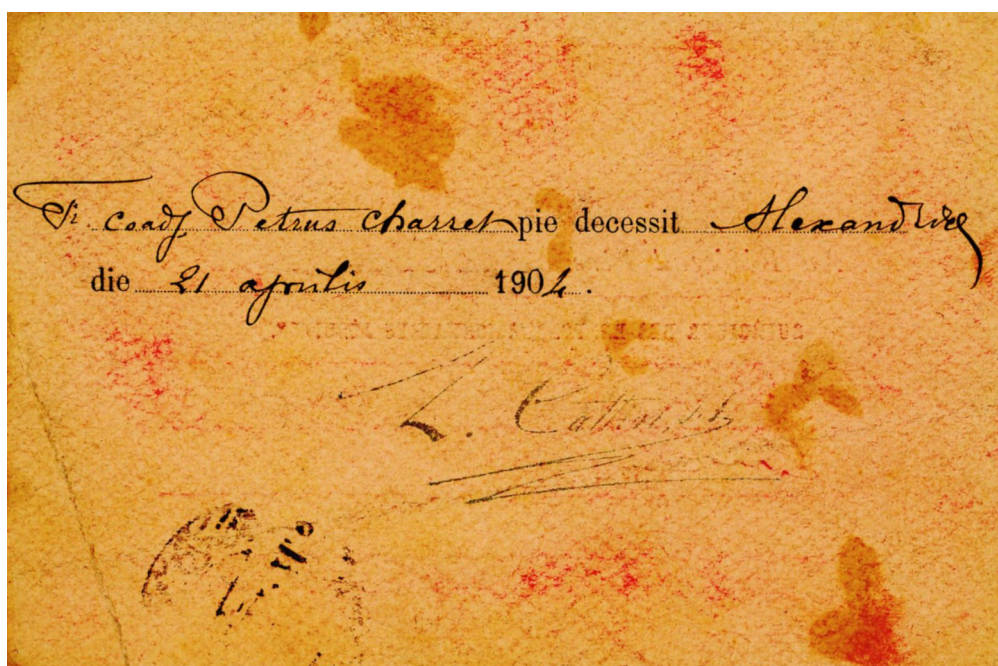 Fr. coadj Petrus Charret pie decessit Alexandriae
die 21 aprilis 1904.
L.